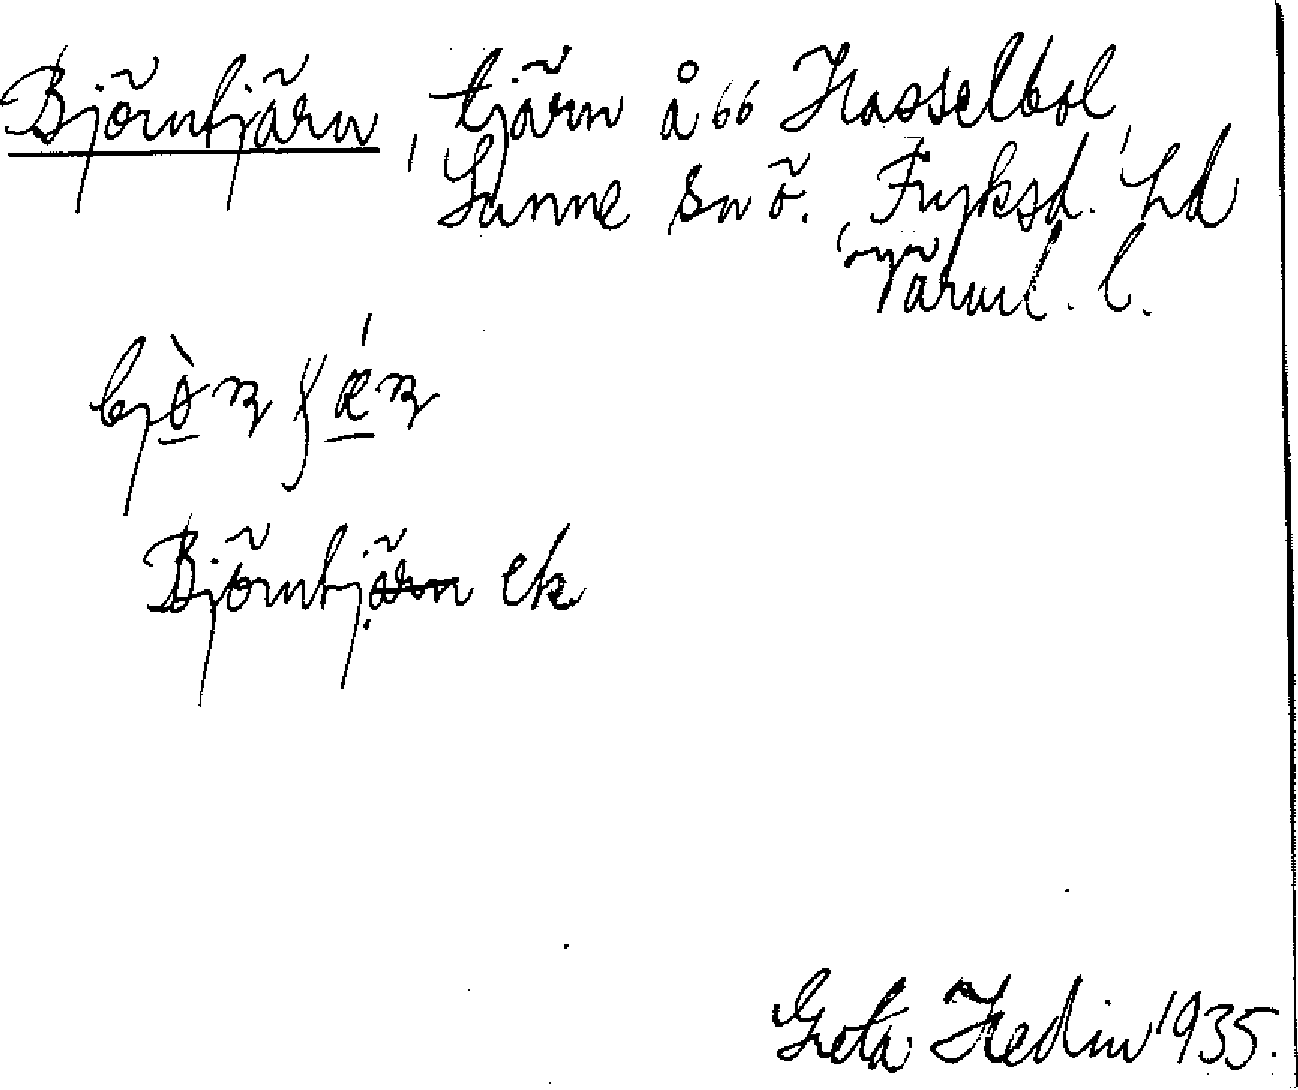 Björntjärn, tjärn å 66 Hasselbol,
Sunne sn ö. Fryksd. hd
Värml. l.
Björntjärn ek
Greta Hedin 1935.